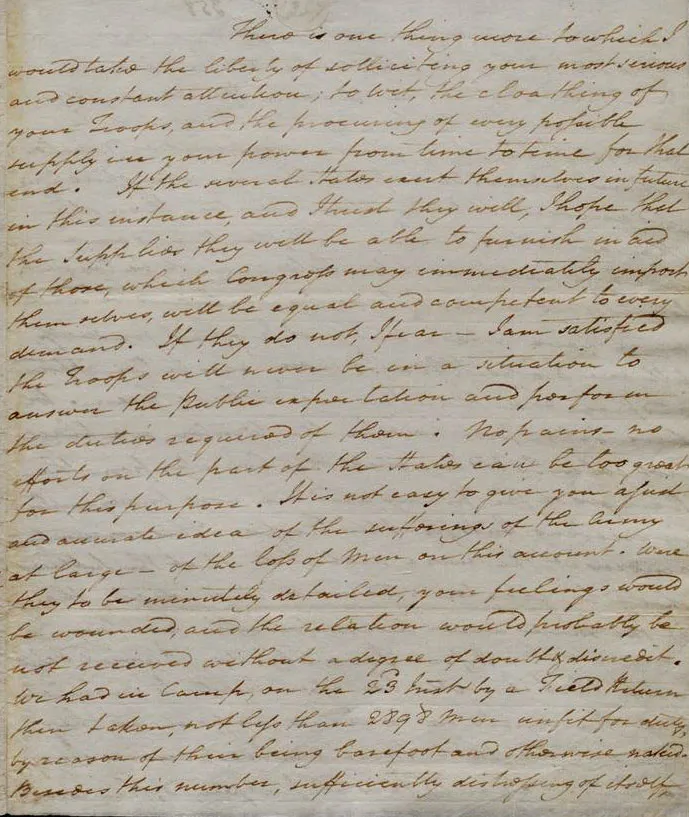 There is one thing more to which I
would take the liberty of solliciting your most serious
and constant attention; to wit, the cloathing of
your Troops, and the procuring of every possible
supply in your power from time to time for that
end. If the several States exert themselves in future
in this instance, and I trust they will, I hope that
the Supplies they will be able to furnish in aid
of those, which Congress may immediately import
themselves, will be equal and competent to every
demand. If they do not, I fear – I am satisfied
the Troops will never be in a situation to
answer the Public expectation and perform
the duties required of them. No pains – no
efforts on the part of the States can be too great
for this purpose. It is not easy to give you a just
and accurate idea of the sufferings of the Army
at large – of the loss of Men on this account. Were
they to be minutely detailed, your feelings would
be wounded, and the relation would probably be
not received without a degree of doubt & discredit.
We had in Camp, on the 23 Inst by a Field Return
then taken, not less than 2898 Men unfit for duty,
by reason of their being barefoot and otherwise naked.
Besides this number, sufficiently distressing of itself,